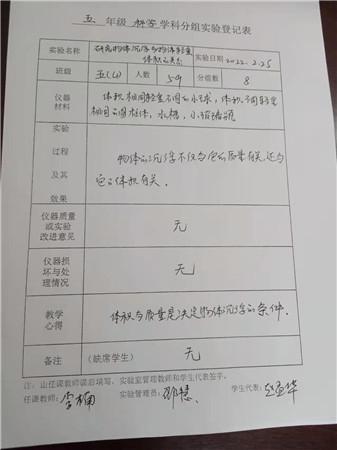 五 年级 科学 学科分组实验登记表
实验名称 研究物体沉浮与物体轻重 体积的关系 实验日期 2022.2.25
班级 五(4) 人数 59 分组数 8
仪器材料 体积相同轻重不同的小球,体积不同轻重
相同的圆柱体,水槽,小
实验过程及其效果 物体的沉浮不仅与它的质量有关,还与
它的体积有关.
仪器质量或实验改进意见 无
仪器损坏与处理情况 无
教学心得 体积与质量是决定物体沉浮的条件.
备注 (缺席学生) 无
注:由任课教师课后填写,实验室管理教师和学生代表签字。
任课教师: 李楠 实验管理员: 邵慧 学生代表: